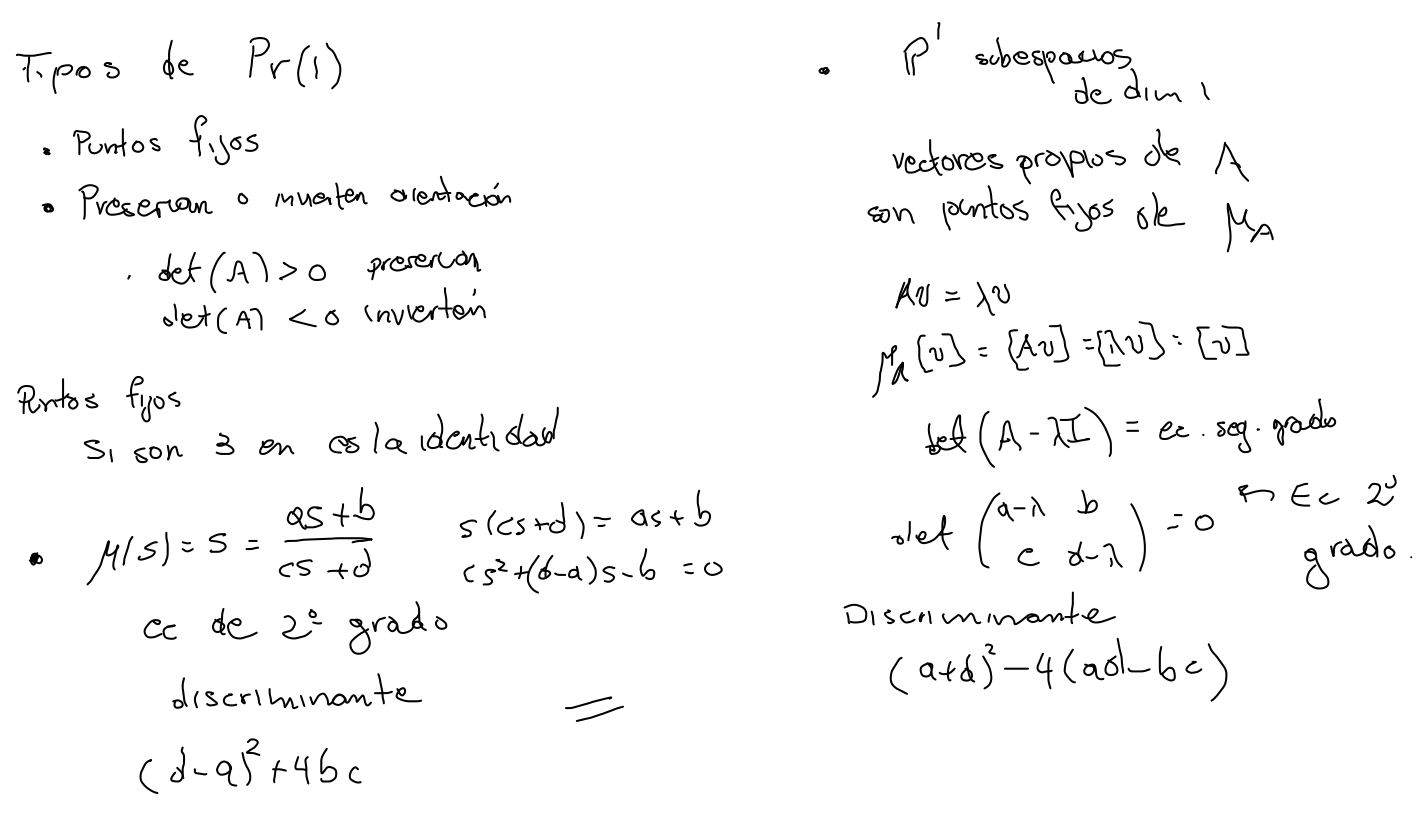 Tipos de Pr(1)
• Puntos fijos
• Preservan o invierten orientación
. det(A) > 0 preservan
det(A) < 0 invierten
Puntos fijos
Si son 3 en es la identidad
• μ(s) = s = (as + b)/(cs + d) s(cs+d) = as + b
cs² + (d-a)s - b = 0
ec de 2º grado
discriminante =
(d-a)² + 4bc
• ℙ¹ subespacios
de dim 1
vectores propios de A
son puntos fijos de μ_A
Av = λv
μ_A[v] = [Av] = [λv] = [v]
det(A - λI) = ec. seg. grado
det (a-λ b
c d-λ) = 0 ← Ec 2º
grado.
Discriminante
(a+d)² - 4(ad - bc)